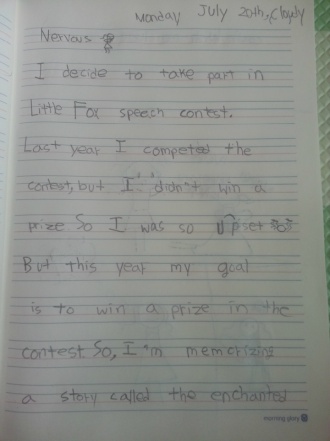 Monday July 20th, Cloudy
Nervous
I decide to take part in
Little Fox speech contest.
Last year I competed the
contest, but I didn't win a
prize So I was so upset
But this year my goal
is to win a prize in the
contest So, I'm memorizing
a story called the enchanted
morning glory